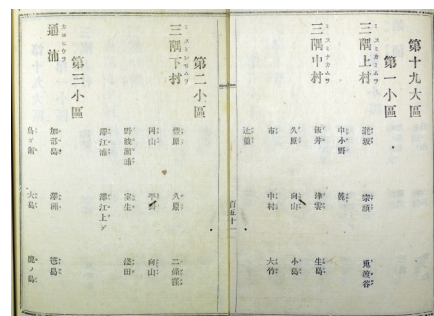 第十九大區
第一小區
三隅上村 ミスミカミムラ
瀧坂 宗頭 兎渡谷
中小野 麓
三隅中村 ミスミナカムラ
飯井 津雲 生島
久原 向山 小島
市 中村 大竹
百五十一
第二小區
三隅下村 ミスミシモムラ
豊原 久原 二條窪
岡山 平野 向山
野波瀬浦 室生 淺田
澤江浦 澤江上ゲ
第三小區
通浦 カヨヒウラ
加部島 澤浦 笹島
大島 鹿ノ島